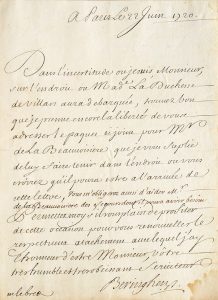 A Paris Le 22 Juin 1720.
Dans l'incertitude ou je suis Monsieur,
sur l'endroit ou Mad.e La Duchesse
de Villars aura debarqué, trouvés bon
que je prenne encor la liberté de vous
adresser le paquet cy joint pour M.
de La Beaumoniere, que je vous suplie
de luy faire tenir dans l'endroit ou vous
croirés qu'il pourra estre a l'arrivée de
cette lettre,
Permettés moy s'il vous plaist de profiter
de cette ocasion pour vous renouveller le
respectueux atachement avec lequel j'ay
l'honneur d'estre Monsieur, Votre
tres humble et tres obeissant Serviteur
Beringhen